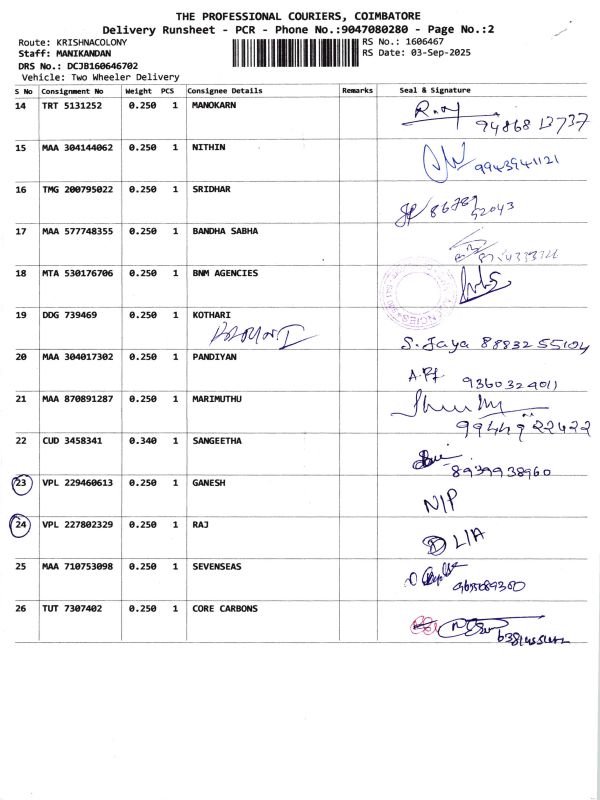 THE PROFESSIONAL COURIERS, COIMBATORE
Delivery Runsheet - PCR - Phone No.:9047080280 - Page No.:2
Route: KRISHNACOLONY RS No.: 1606467
Staff: MANIKANDAN RS Date: 03-Sep-2025
DRS No.: DCJB160646702
Vehicle: Two Wheeler Delivery
S No Consignment No Weight PCS Consignee Details Remarks Seal & Signature
14 TRT 5131252 0.250 1 MANOKARN
15 MAA 304144062 0.250 1 NITHIN
9943941121
16 TMG 200795022 0.250 1 SRIDHAR
17 MAA 577748355 0.250 1 BANDHA SABHA
18 MTA 530176706 0.250 1 BNM AGENCIES
19 DDG 739469 0.250 1 KOTHARI
S. Jaya 88832 55104
20 MAA 304017302 0.250 1 PANDIYAN
9360324011
21 MAA 870891287 0.250 1 MARIMUTHU
99449 22422
22 CUD 3458341 0.340 1 SANGEETHA
8939938960
23 VPL 229460613 0.250 1 GANESH N/P
24 VPL 227802329 0.250 1 RAJ D L/A
25 MAA 710753098 0.250 1 SEVENSEAS
26 TUT 7307402 0.250 1 CORE CARBONS